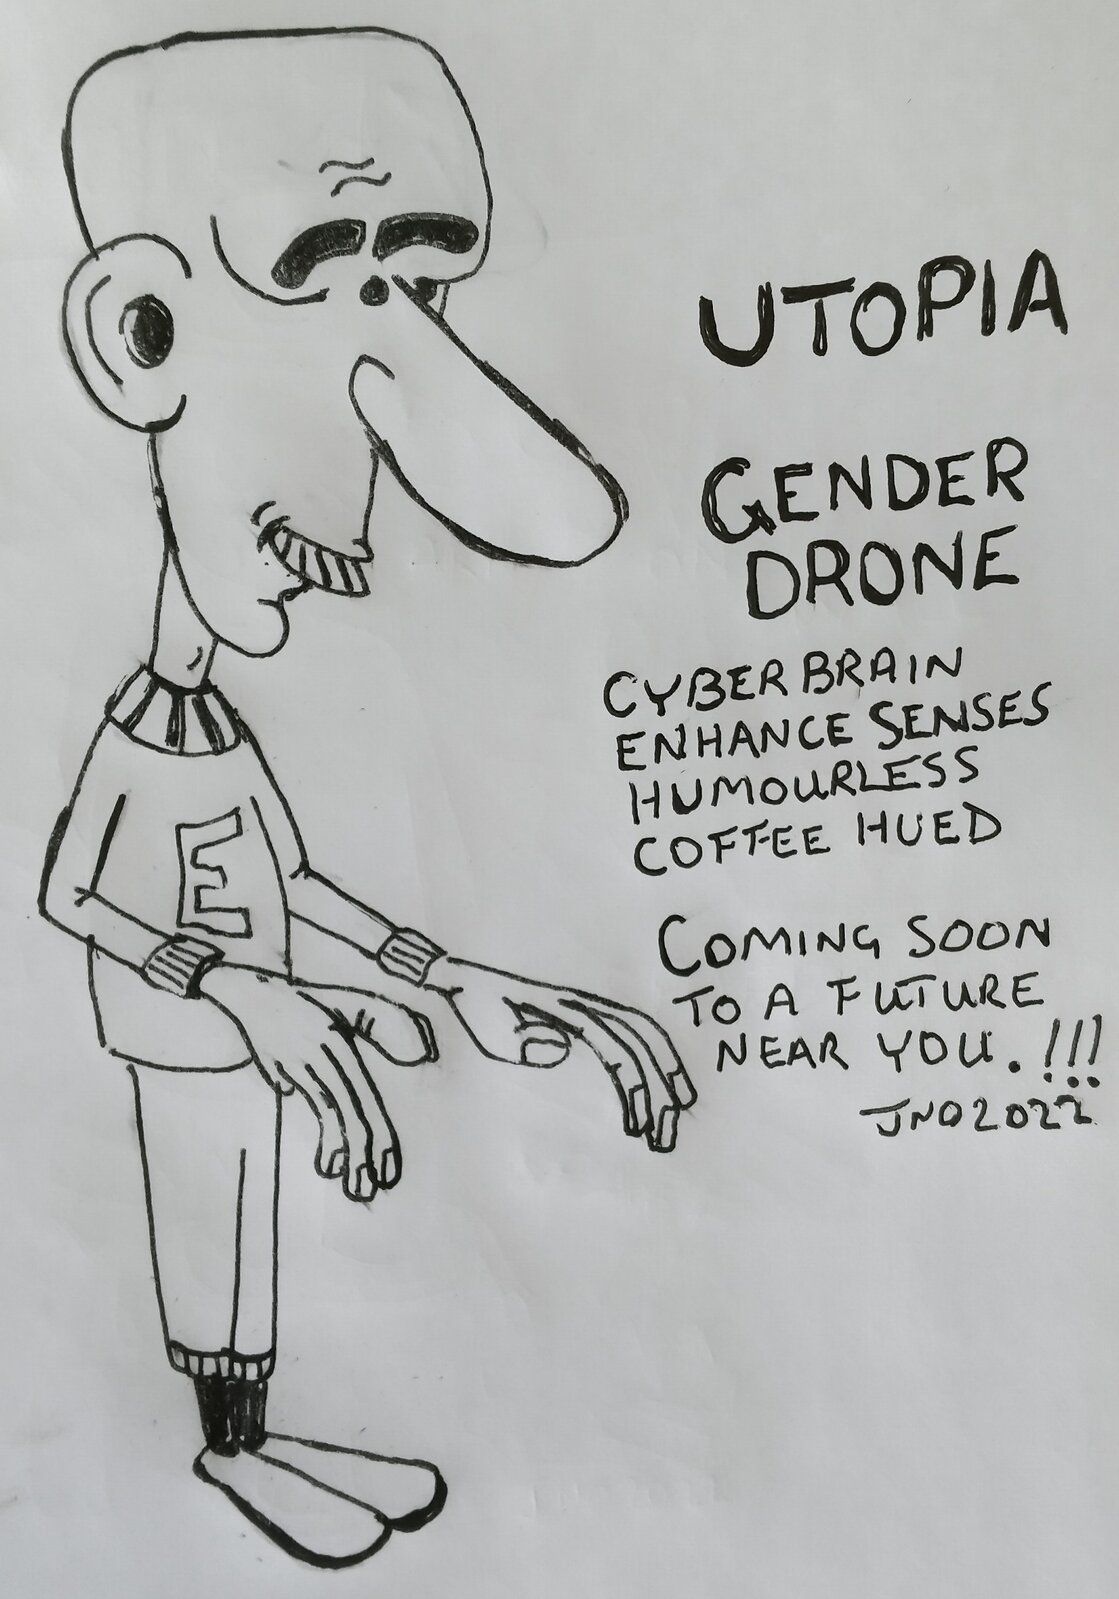 UTOPIA
GENDER
DRONE
CYBERBRAIN
ENHANCE SENSES
HUMOURLESS
COFFEE HUED
E
COMING SOON
TO A FUTURE
NEAR YOU.!!!
JNO2022